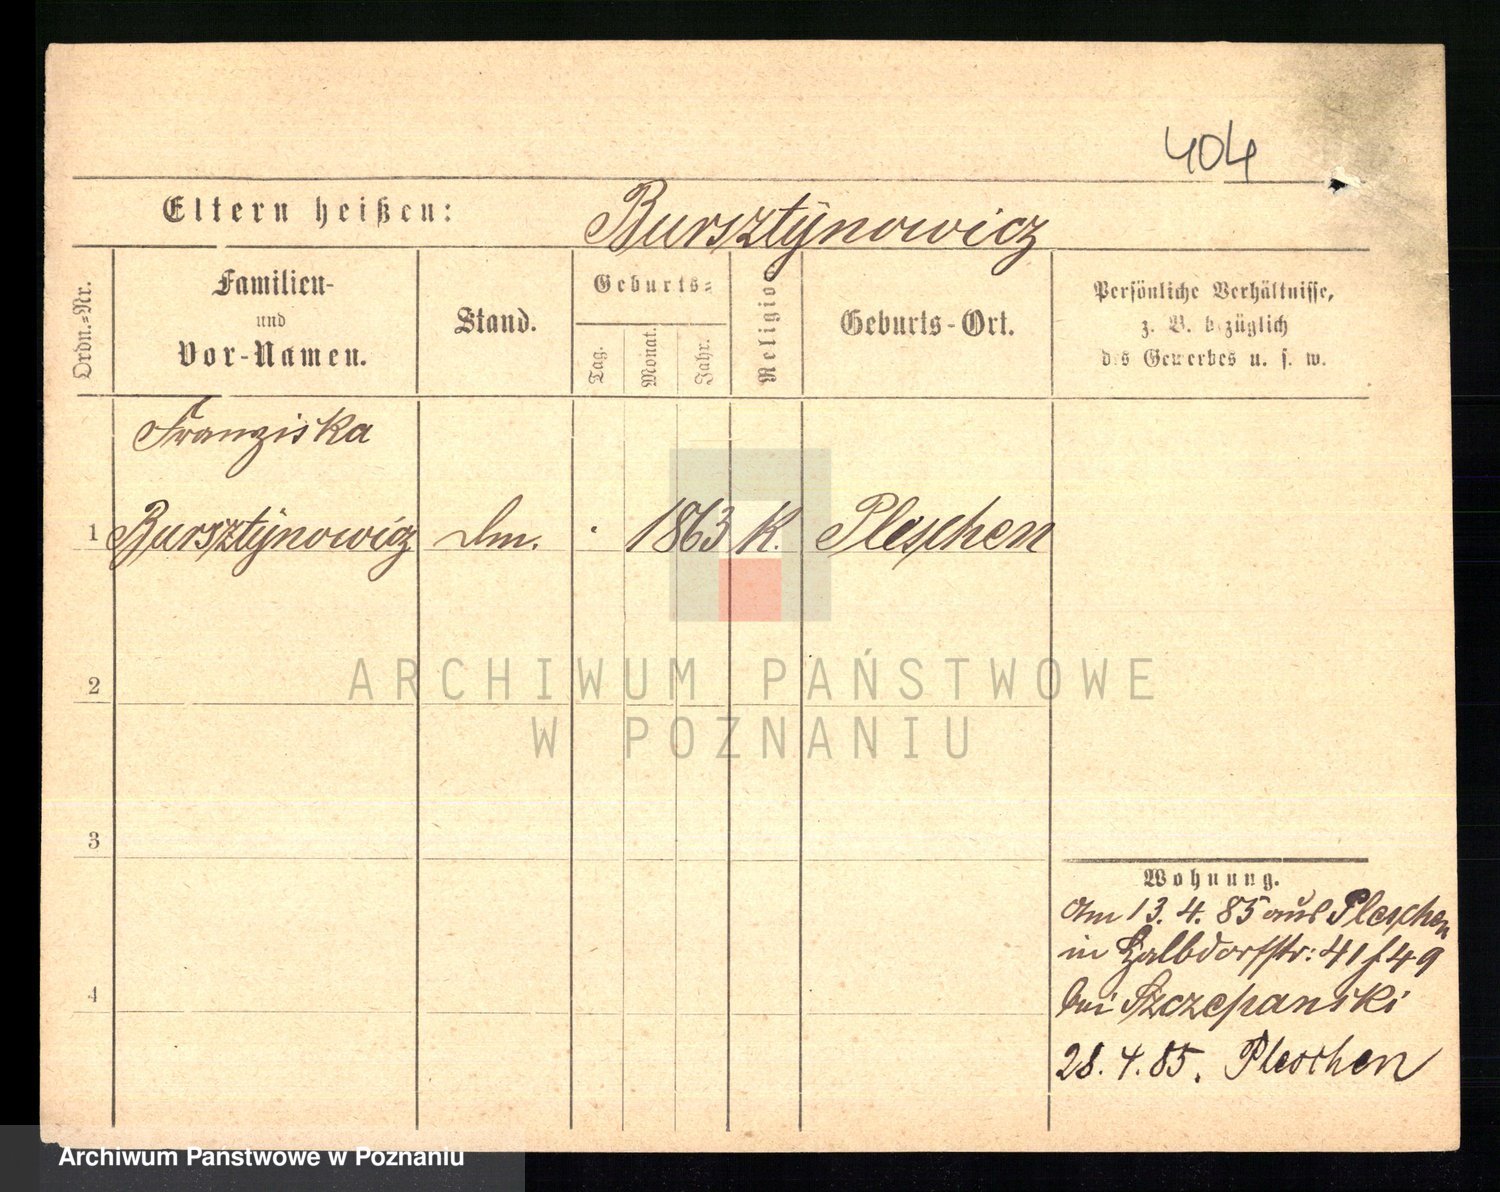 404
Eltern heißen: Bursztynowicz
Ordn.-Nr.
Familien-
und
Vor-Namen.
Stand.
Geburts-
Tag.
Monat.
Jahr.
Religion
Geburts-Ort.
Persönliche Verhältnisse,
z. B. bezüglich
des Gewerbes u. s. w.
Franziska
1 Bursztynowicz . 1863 K. Pleschen
2
3
4
Wohnung.
Am 13. 4. 85 aus Pleschen
in Halbdorfstr: 41/49
bei Szczepanski
28. 4. 85. Pleschen
ARCHIWUM PAŃSTWOWE
W POZNANIU
Archiwum Państwowe w Poznaniu